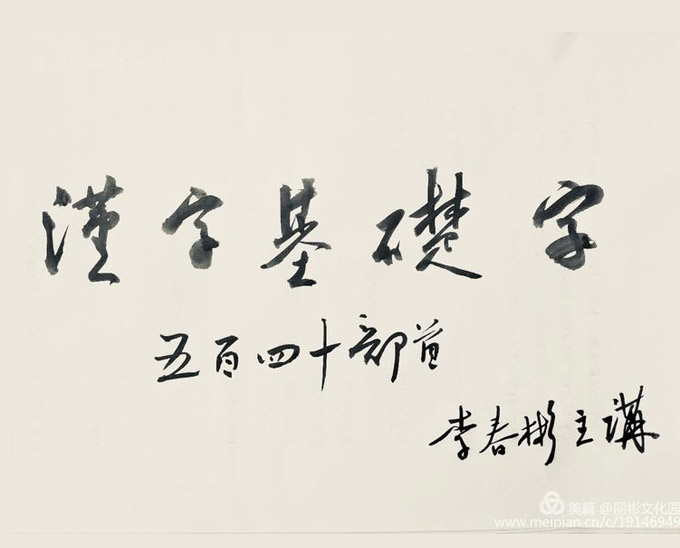 漢字基礎字
五百四十部首
李春彬主講
美篇 @丽彬文化园
www.meipian.cn/c/19146949